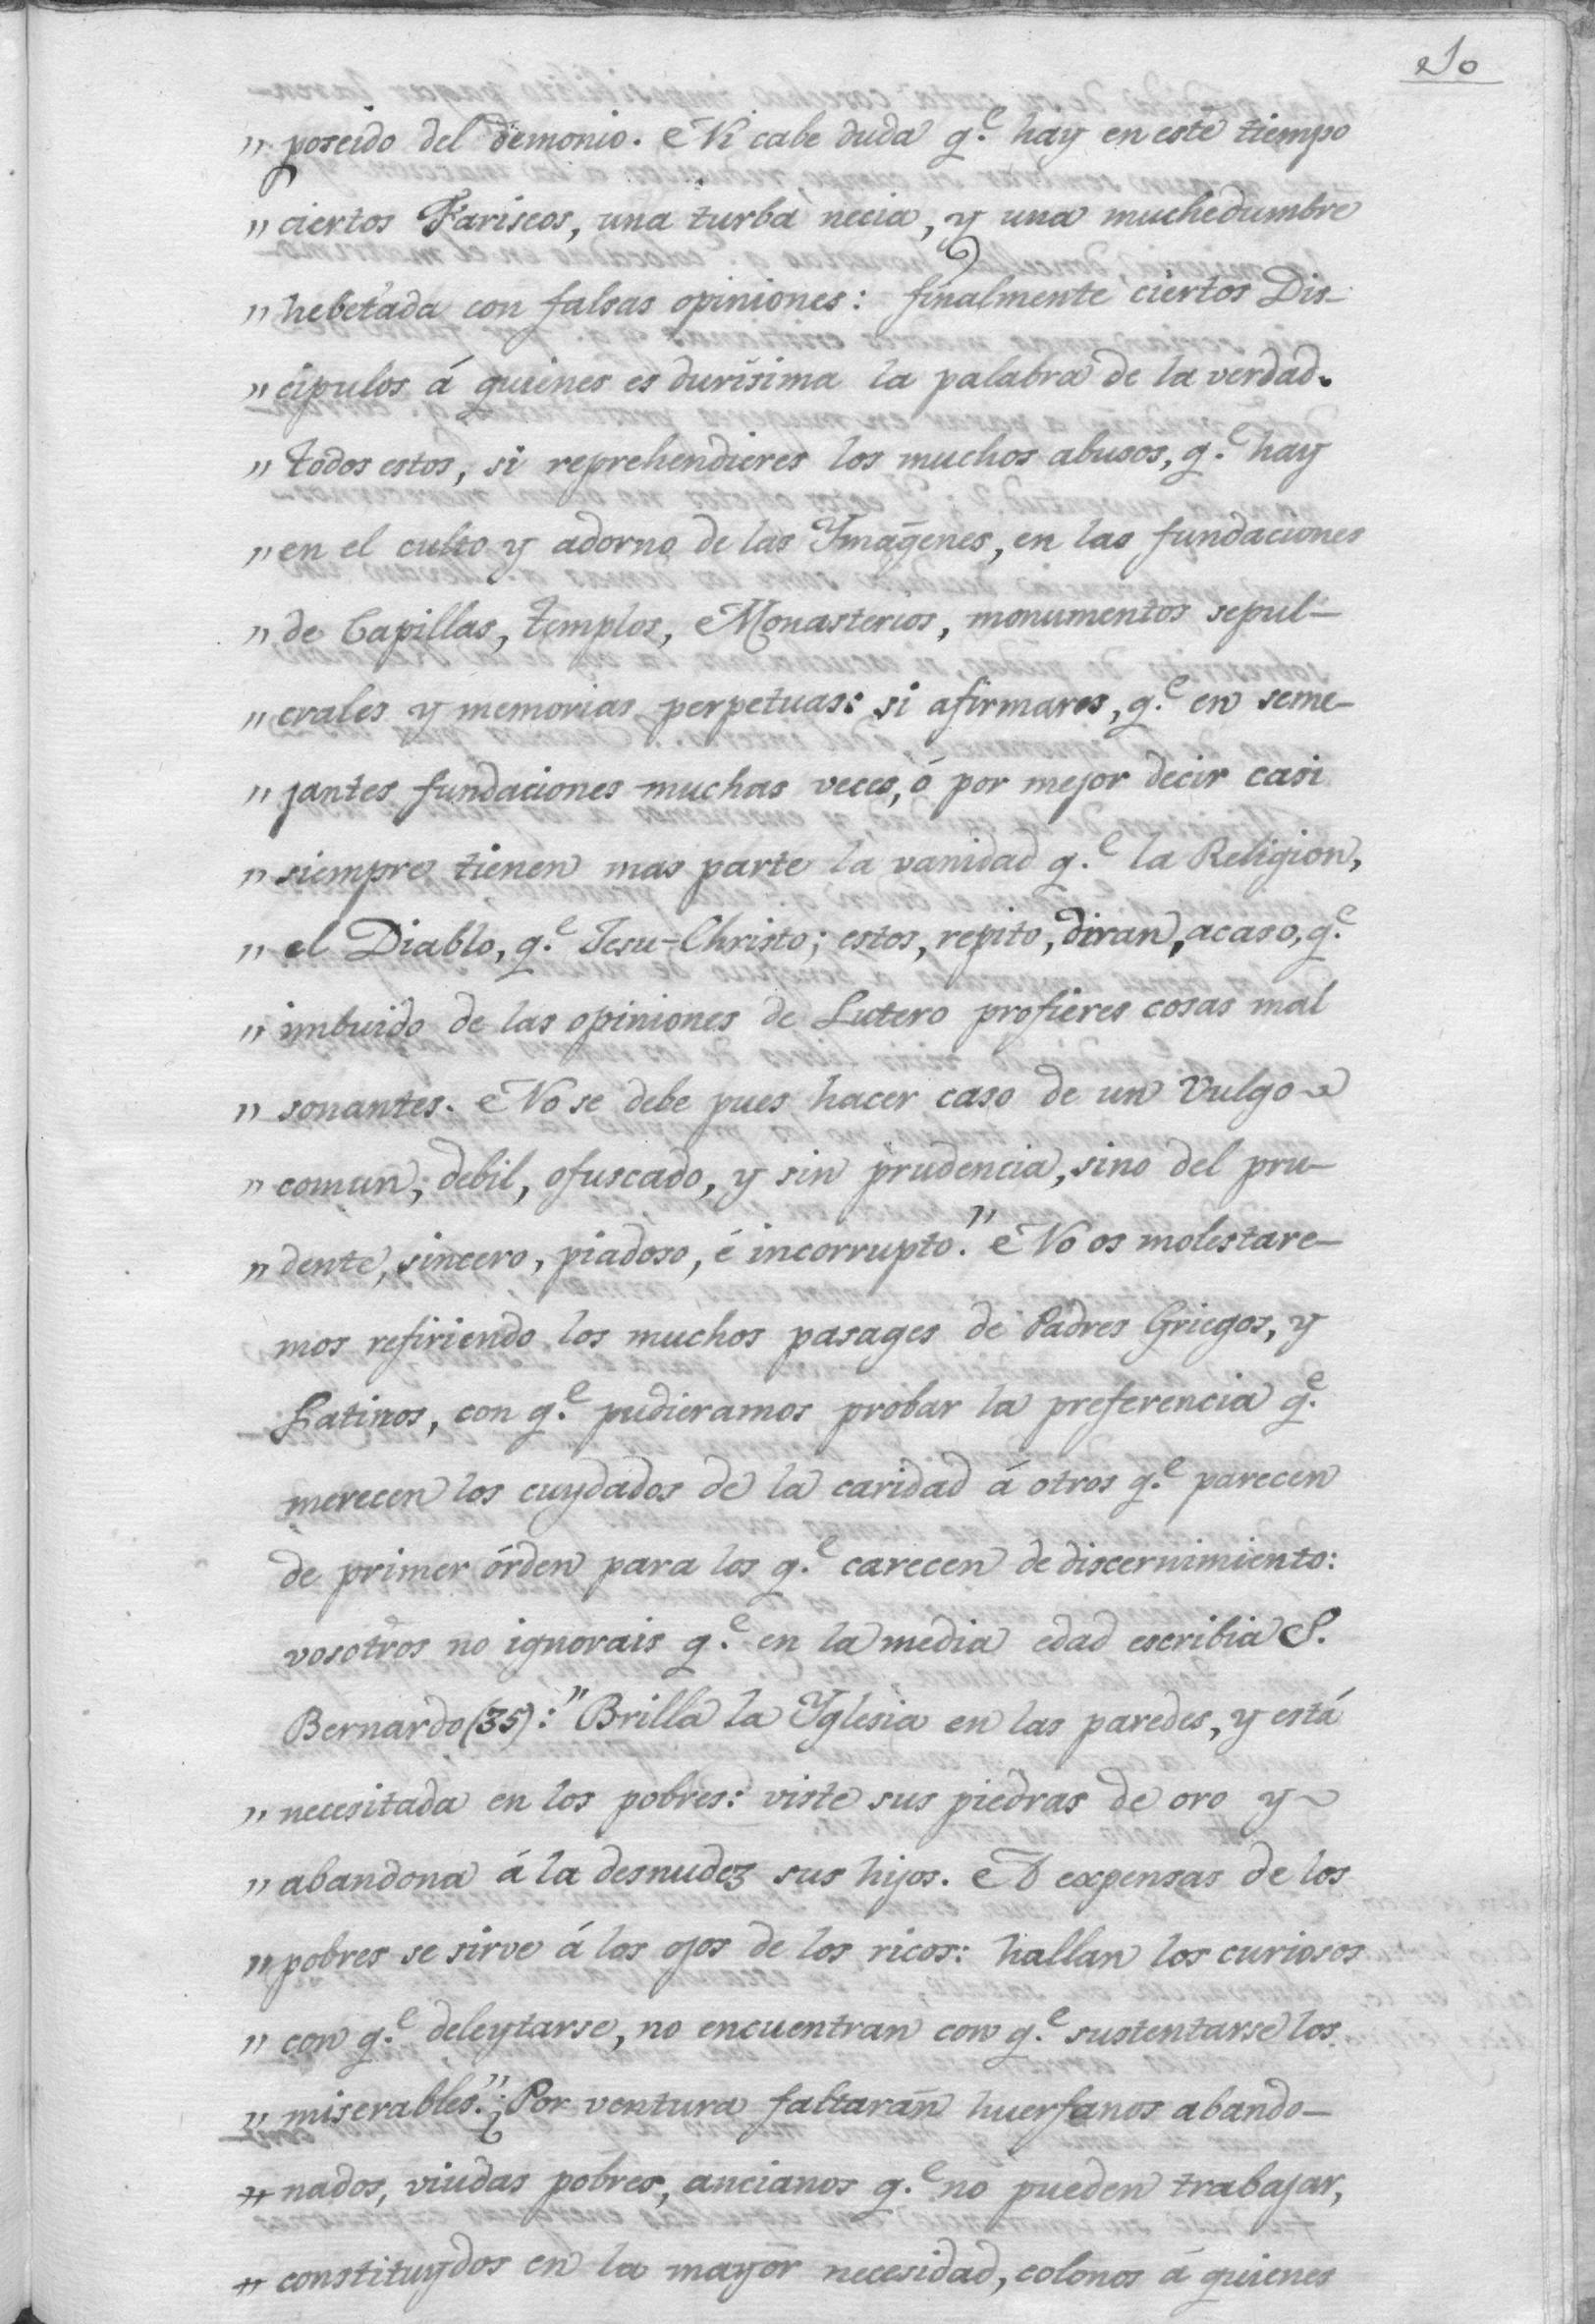 10
" poseido del demonio. Ni cabe duda q.e hay en este tiempo
" ciertos Fariseos, una turba necia, y una muchedumbre
" hebetada con falsas opiniones: finalmente ciertos Dis-
" cipulos á quienes es durísima la palabra de la verdad.
" Todos estos, si reprehendieres los muchos abusos, q.e hay
" en el culto y adorno de las Ymagenes, en las fundaciones
" de Capillas, Templos, Monasterios, monumentos sepul-
" crales y memorias perpetuas: si afirmares, q.e en seme-
" jantes fundaciones muchas veces, ó por mejor decir casi
" siempre tienen mas parte la vanidad q.e la Religion,
" el Diablo, q.e Jesu-Christo; estos, repito, diran, acaso, q.e
" imbuido de las opiniones de Lutero profieres cosas mal
" sonantes. No se debe pues hacer caso de un Vulgo
" comun, debil, ofuscado, y sin prudencia, sino del pru-
" dente, sincero, piadoso, é incorrupto." No os molestare-
mos refiriendo los muchos pasages de Padres Griegos, y
Latinos, con q.e pudieramos probar la preferencia q.e
merecen los cuydados de la caridad á otros q.e parecen
de primer órden para los q.e carecen de discernimiento:
vosotros no ignorais q.e en la media edad escribia S.
Bernardo (35): "Brilla la Yglesia en las paredes, y está
" necesitada en los pobres: viste sus piedras de oro y
" abandona á la desnudez sus hijos. A expensas de los
" pobres se sirve á los ojos de los ricos: hallan los curiosos
" con q.e deleytarse, no encuentran con q.e sustentarse los
" miserables." ¿Por ventura faltarán huerfanos abando-
nados, viudas pobres, ancianos q.e no pueden trabajar,
constituydos en la mayor necesidad, colonos á quienes